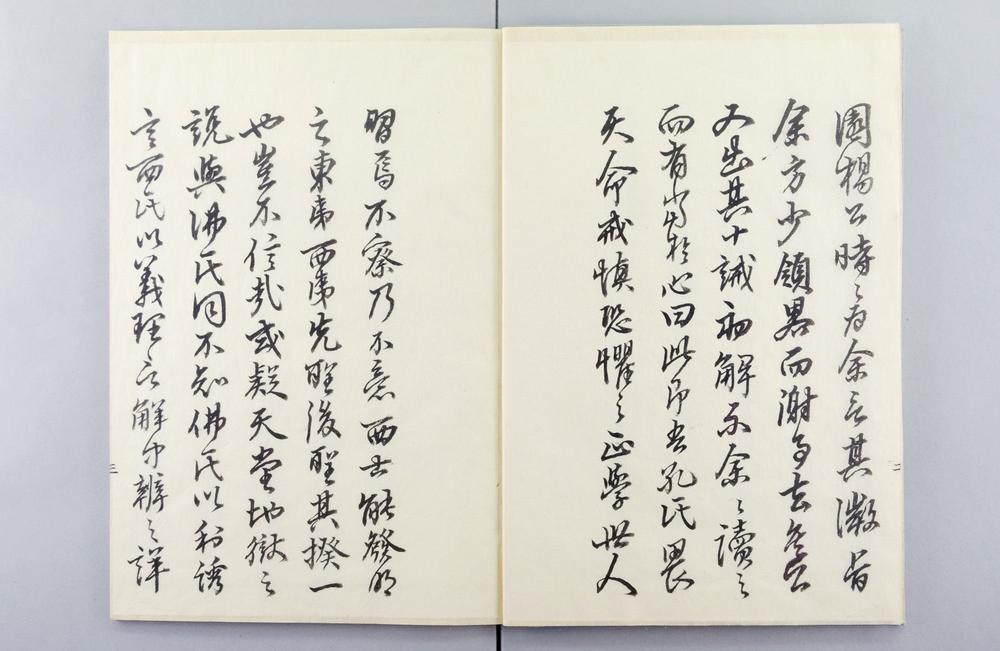 園楊公時〻為余言其微旨
余方少領畧而謝事去矣公
又出其十誡初解示余〻讀之
而有當於心曰此即吾孔氏畏
天命戒慎恐懼之正學世人
二
習焉不察乃不意西士能發明
之東海西海先聖後聖其揆一
也豈不信哉或疑天堂地獄之
說與佛氏同不知佛氏以利誘
言西氏以義理言解中辨之詳
三